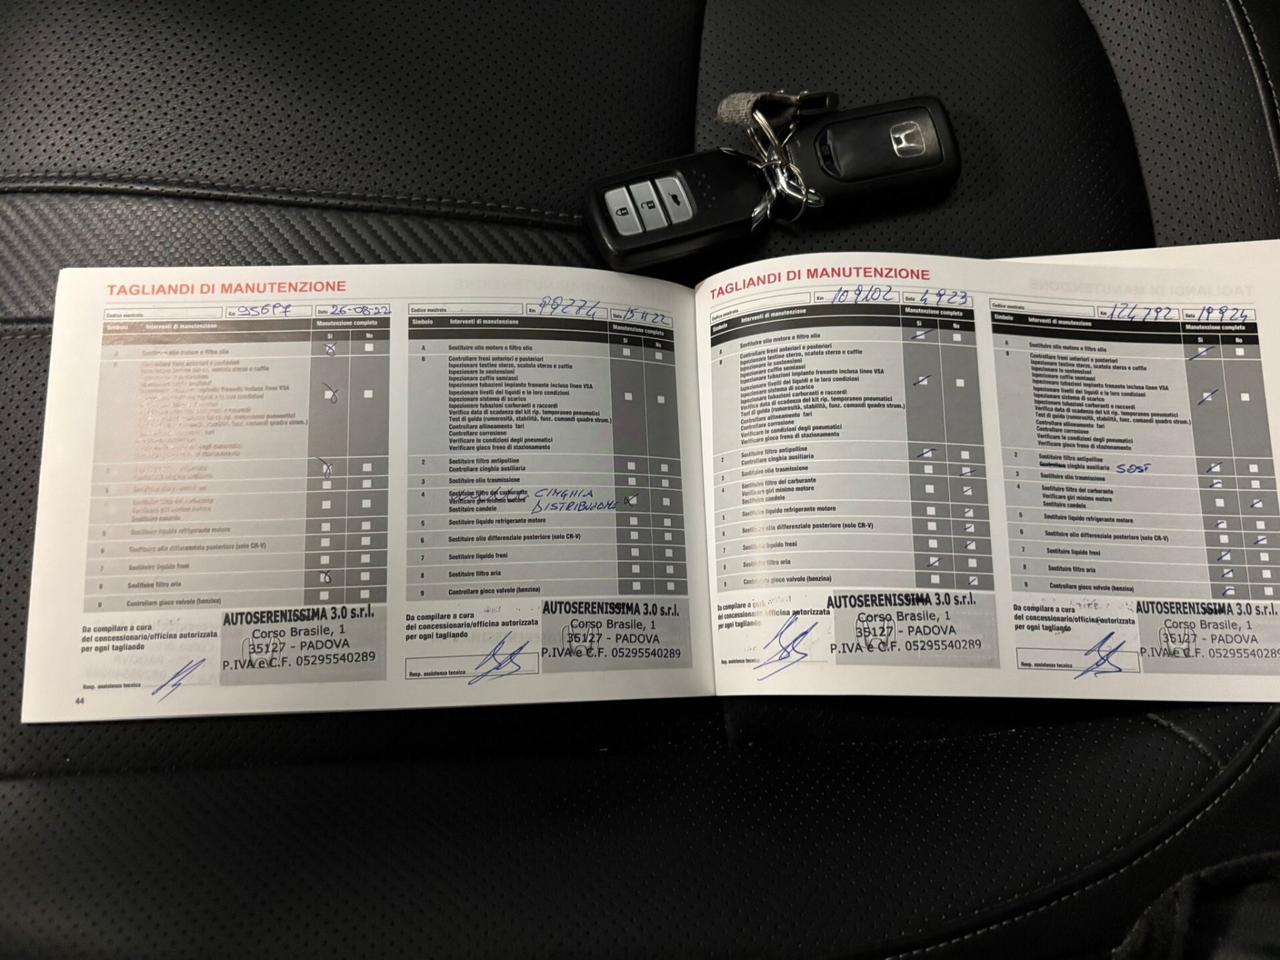 TAGLIANDI DI MANUTENZIONE
Codice mostrato Km 95697 Data 26-08-22
Simbolo Interventi di manutenzione Manutenzione completa
Si No
A Sostituire olio motore e filtro olio
Sostituire liquido refrigerante motore
6 Sostituire olio differenziale posteriore (solo CR-V)
7 Sostituire liquido freni
8 Sostituire filtro aria
9 Controllare gioco valvole (benzina)
Da compilare a cura
del concessionario/officina autorizzata
per ogni tagliando
Resp. assistenza tecnica
AUTOSERENISSIMA 3.0 s.r.l.
Corso Brasile, 1
35127 - PADOVA
P.IVA e C.F. 05295540289
44
Km 99274 Data 15-11-22
Simbolo Interventi di manutenzione Manutenzione completa
Si No
A Sostituire olio motore e filtro olio
B Controllare freni anteriori e posteriori
Ispezionare testine sterzo, scatola sterzo e cuffie
Ispezionare le sospensioni
Ispezionare cuffie semiassi
Ispezionare tubazioni impianto frenante incluse linee VSA
Ispezionare livelli dei liquidi e le loro condizioni
Ispezionare sistema di scarico
Ispezionare tubazioni carburanti e raccordi
Verifica data di scadenza del kit rip. temporaneo pneumatici
Test di guida (rumorosità, stabilità, funz. comandi quadro strum.)
Controllare allineamento fari
Controllare corrosione
Verificare le condizioni degli pneumatici
Verificare gioco freno di stazionamento
2 Sostituire filtro antipolline
Controllare cinghia ausiliaria
3 Sostituire olio trasmissione
4 Sostituire filtro del carburante CINGHIA
Verificare giri minimo motore DISTRIBUZIONE
Sostituire candele
5 Sostituire liquido refrigerante motore
6 Sostituire olio differenziale posteriore (solo CR-V)
7 Sostituire liquido freni
8 Sostituire filtro aria
9 Controllare gioco valvole (benzina)
Da compilare a cura
del concessionario/officina autorizzata
per ogni tagliando
Resp. assistenza tecnica
AUTOSERENISSIMA 3.0 s.r.l.
Corso Brasile, 1
35127 - PADOVA
P.IVA e C.F. 05295540289
TAGLIANDI DI MANUTENZIONE
Km 109102 Data 4 9 23
Simbolo Interventi di manutenzione Manutenzione completa
Si No
A Sostituire olio motore e filtro olio
B Controllare freni anteriori e posteriori
Ispezionare testine sterzo, scatola sterzo e cuffie
Ispezionare le sospensioni
Ispezionare cuffie semiassi
Ispezionare tubazioni impianto frenante incluse linee VSA
Ispezionare livelli dei liquidi e le loro condizioni
Ispezionare sistema di scarico
Ispezionare tubazioni carburanti e raccordi
Verifica data di scadenza del kit rip. temporaneo pneumatici
Test di guida (rumorosità, stabilità, funz. comandi quadro strum.)
Controllare allineamento fari
Controllare corrosione
Verificare le condizioni degli pneumatici
Verificare gioco freno di stazionamento
2 Sostituire filtro antipolline
Controllare cinghia ausiliaria
3 Sostituire olio trasmissione
4 Sostituire filtro del carburante
Verificare giri minimo motore
Sostituire candele
5 Sostituire liquido refrigerante motore
6 Sostituire olio differenziale posteriore (solo CR-V)
7 Sostituire liquido freni
8 Sostituire filtro aria
9 Controllare gioco valvole (benzina)
Da compilare a cura
del concessionario/officina autorizzata
per ogni tagliando
Resp. assistenza tecnica
AUTOSERENISSIMA 3.0 s.r.l.
Corso Brasile, 1
35127 - PADOVA
P.IVA e C.F. 05295540289
Codice mostrato Km 124792 Data 19 9 24
Simbolo Interventi di manutenzione Manutenzione completa
Si No
A Sostituire olio motore e filtro olio
B Controllare freni anteriori e posteriori
Ispezionare testine sterzo, scatola sterzo e cuffie
Ispezionare le sospensioni
Ispezionare cuffie semiassi
Ispezionare tubazioni impianto frenante incluse linee VSA
Ispezionare livelli dei liquidi e le loro condizioni
Ispezionare sistema di scarico
Ispezionare tubazioni carburanti e raccordi
Verifica data di scadenza del kit rip. temporaneo pneumatici
Test di guida (rumorosità, stabilità, funz. comandi quadro strum.)
Controllare allineamento fari
Controllare corrosione
Verificare le condizioni degli pneumatici
Verificare gioco freno di stazionamento
2 Sostituire filtro antipolline
Controllare cinghia ausiliaria SOST
3 Sostituire olio trasmissione
4 Sostituire filtro del carburante
Verificare giri minimo motore
Sostituire candele
5 Sostituire liquido refrigerante motore
6 Sostituire olio differenziale posteriore (solo CR-V)
7 Sostituire liquido freni
8 Sostituire filtro aria
9 Controllare gioco valvole (benzina)
Da compilare a cura
del concessionario/officina autorizzata
per ogni tagliando
Resp. assistenza tecnica
AUTOSERENISSIMA 3.0 s.r.l.
Corso Brasile, 1
35127 - PADOVA
P.IVA e C.F. 05295540289